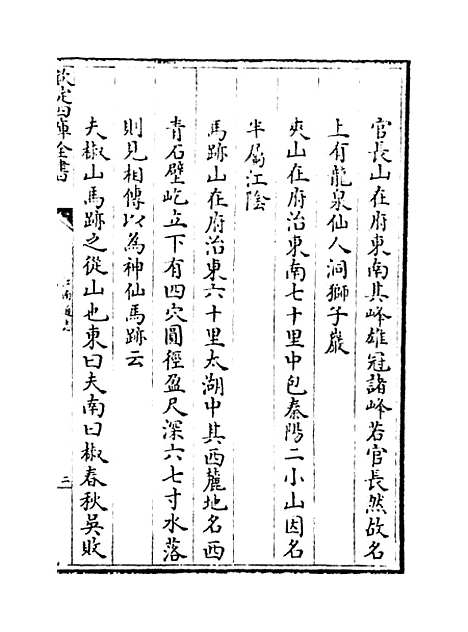 官長山在府東南其峰雄冠諸峰若官長然故名
上有龍泉仙人洞獅子巖
夾山在府治東南七十里中包秦陽二小山因名
半屬江陰
馬跡山在府治東六十里太湖中其西麓地名西
青石壁屹立下有四穴圓徑盈尺深六七寸水落
則見相傳以為神仙馬跡云
夫椒山馬跡之從山也東曰夫南曰椒春秋吳敗
欽定四庫全書
江南通志
三